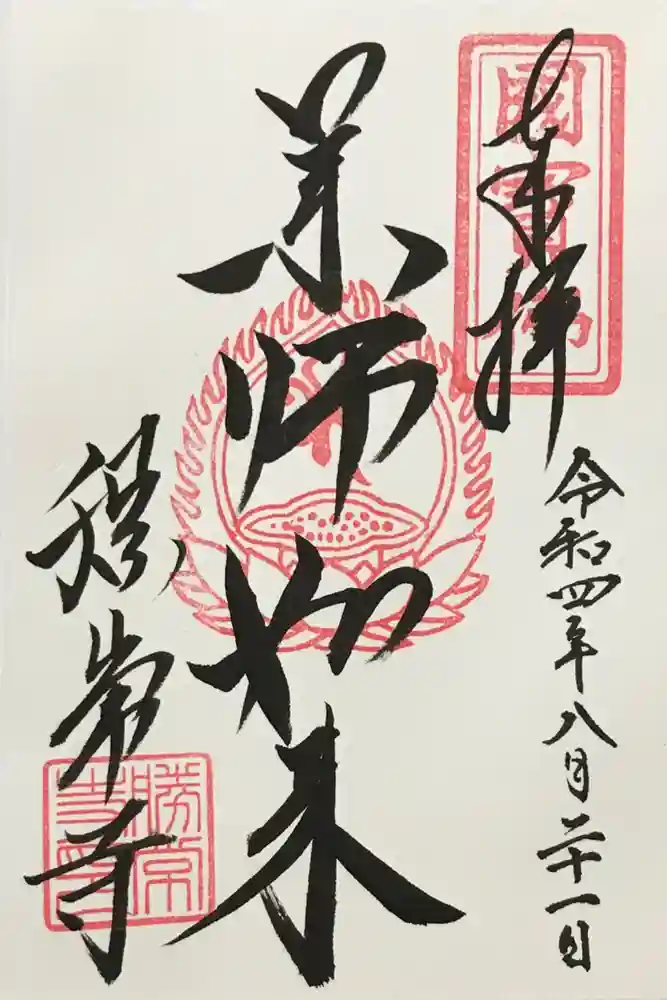 奉拝
國寳佛
令和四年八月二十一日
薬師如来
勝常寺
勝常寺印